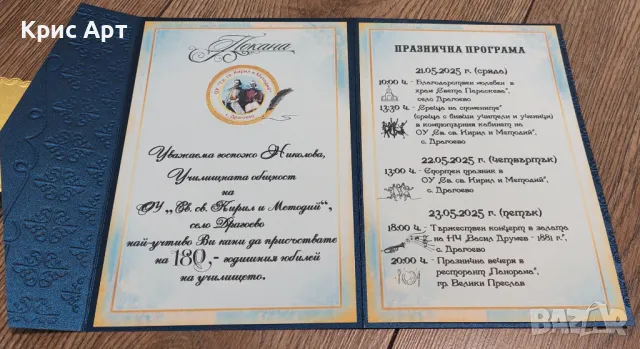 Крис Арт
Покана
ОУ "Св. св. Кирил и Методий"
с. Драгоево
Уважаема госпожо Николова,
Училищната общност
на
ОУ „Св. св. Кирил и Методий",
село Драгоево
най-учтиво Ви кани да присъствате
на 180,- годишния юбилей
на училището.
ПРАЗНИЧНА ПРОГРАМА
21.05.2025 г. (сряда)
10:00 ч. - Благодарствен молебен -
храм „Света Параскева",
село Драгоево
13:30 ч. - „Среща на спомените"
(среща с бивши учители и ученици)
в компютърния кабинет на
ОУ „Св. св. Кирил и Методий",
с. Драгоево
22.05.2025 г. (четвъртък)
13:00 ч. - Спортен празник в
ОУ „Св. св. Кирил и Методий",
с. Драгоево
23.05.2025 г. (петък)
18:00 ч. - Тържествен концерт в залата
на НЧ „Васил Друмев - 1881 г.",
с. Драгоево
20:00 ч. - Празнична вечеря в
ресторант „Панорама",
гр. Велики Преслав
BAZAR
bg